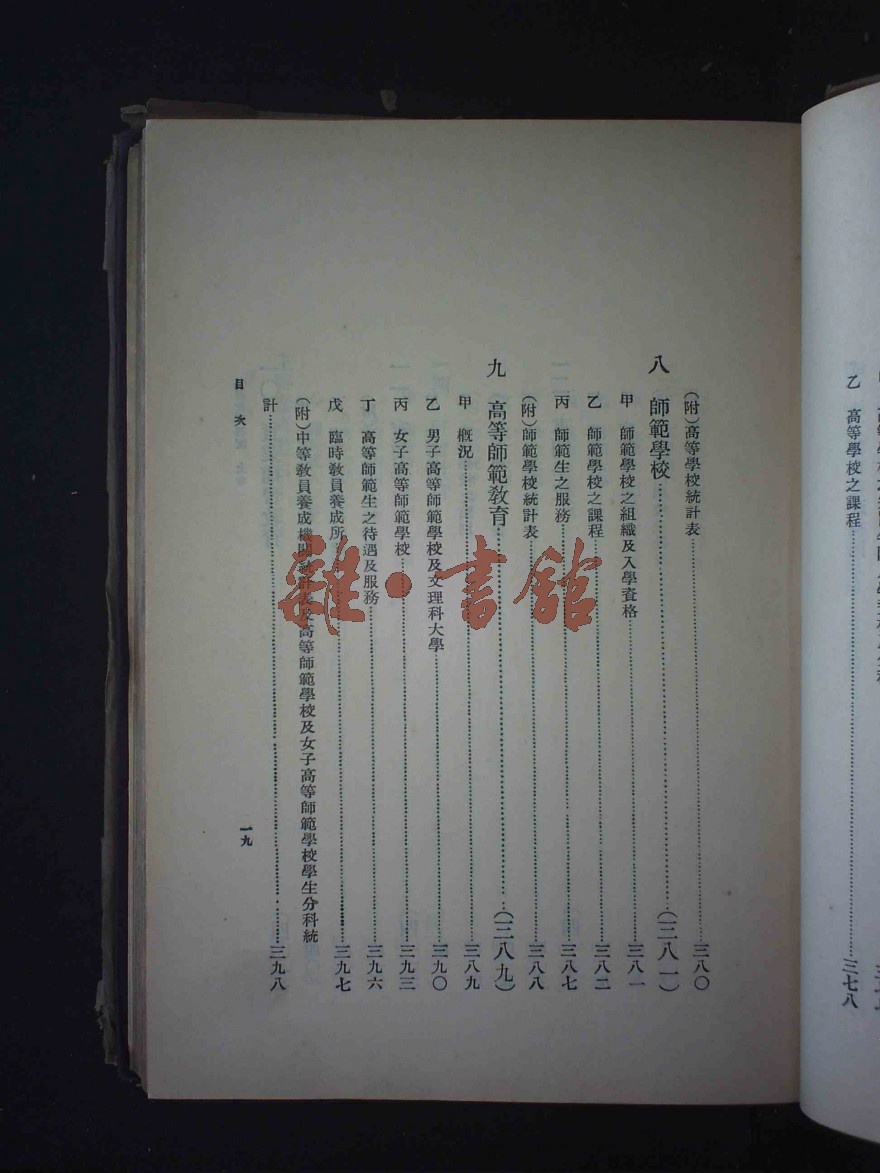 乙　高等學校之課程……三七八
（附）高等學校統計表……三八〇
八　師範學校……（三八一）
甲　師範學校之組織及入學資格……三八一
乙　師範學校之課程……三八二
丙　師範生之服務……三八七
（附）師範學校統計表……三八八
九　高等師範教育……（三八九）
甲　概況……三八九
乙　男子高等師範學校及文理科大學……三九〇
丙　女子高等師範學校……三九三
丁　高等師範生之待遇及服務……三九六
戊　臨時教員養成所……三九七
（附）中等教員養成機關統計表及高等師範學校及女子高等師範學校學生分科統
計……三九八
目次
一九
雜·書館